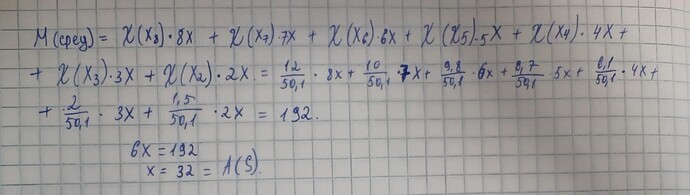 M(сред) = χ(X₈)·8x + χ(X₇)·7x + χ(X₆)·6x + χ(X₅)·5x + χ(X₄)·4x +
+ χ(X₃)·3x + χ(X₂)·2x = 12/50,1 · 8x + 10/50,1 · 7x + 9,8/50,1 · 6x + 8,7/50,1 · 5x + 6,1/50,1 · 4x +
+ 2/50,1 · 3x + 1,5/50,1 · 2x = 192.
6x = 192
x = 32 = A(S).